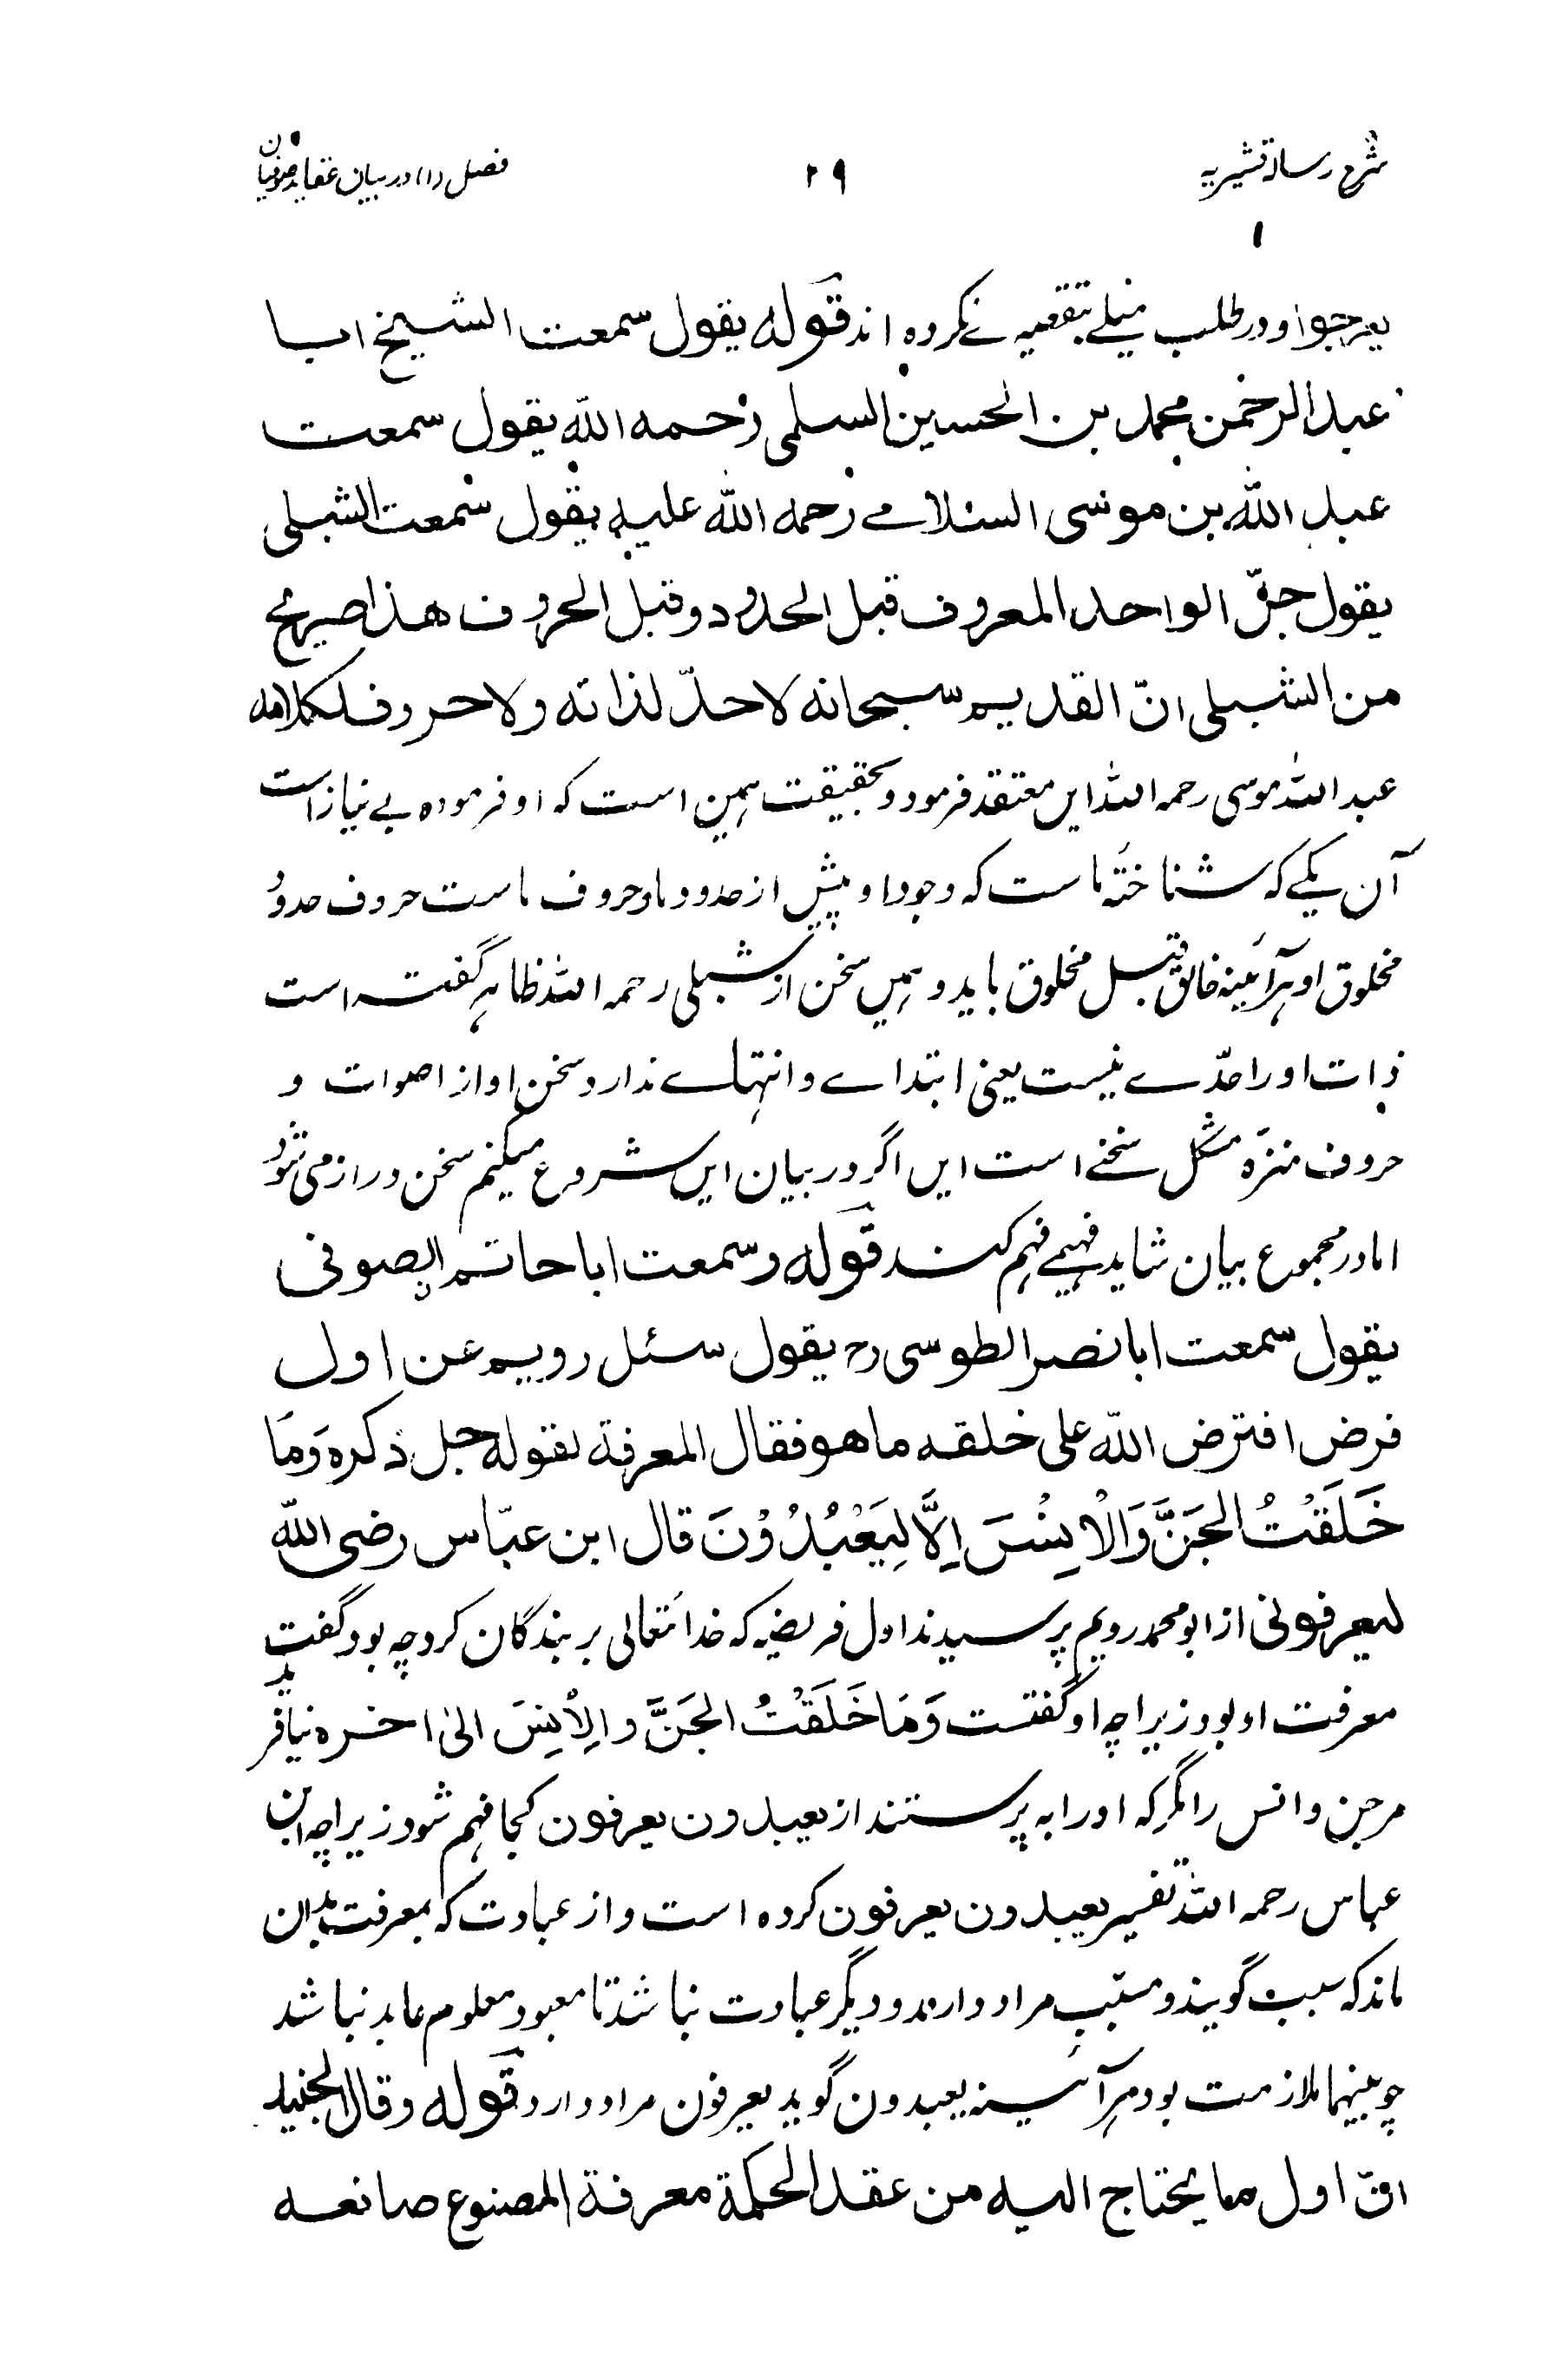 شرح رسالۂ قشیریہ
۲۹
فصل (۱) در بیان عقاید صوفیان
یعرجوا و در طلب میلے بتقصیر نے نکردہ اند قولہ یقول سمعت الشیخ ابا
عبد الرحمن محمد بن الحسین السلمی رحمہ اللہ یقول سمعت
عبد اللہ بن موسی السلامے رحمہ اللہ علیہ یقول سمعت الشبلی
یقول جلّ الواحد المعروف قبل الحدود و قبل الحروف ھذا صریح
من الشبلی انّ القدیم سبحانہ لا حدّ لذاتہ ولا حروف لکلامہ
عبد اللہ موسی رحمہ اللہ این معتقد فرمود و تحقیقت ہمین است کہ او فرمودہ بے نیاز است
آن یکے کہ شناختۂ ما ست کہ وجود او پیش از حدود ما و حروف ما ست حروف حدود
مخلوق او ہرآئینہ خالق قبل مخلوق باید و ہمیں سخن از شبلی رحمہ اللہ ظاہر گفتہ است
ذات او را حدّے نیست یعنی ابتداے و انتہاے ندارد سخن او از اصوات و
حروف منزّہ مشکل سخنے است ایں اگر در بیان ایں شروع میکنم سخن دراز می شود
اما در مجموع بیان شاید فہیمے فہم کند قولہ و سمعت ابا حاتم الصوفی
یقول سمعت ابا نصر الطوسی رح یقول سئل رویم عن اول
فرض افترض اللہ علی خلقہ ما ھو فقال المعرفة لقولہ جل ذکرہ وَمَا
خَلَقْتُ الجِنَّ وَالْاِنْسَ اِلَّا لِیَعْبُدُوْنَ قال ابن عبّاس رضی اللہ
لیعرفونی از ابو محمد رویم پرسیدند اول فریضہ کہ خدا تعالی بر بندگان کرد چہ بود گفت
معرفت او بود زیراچہ او گفتست وَمَا خَلَقْتُ الجِنَّ وَالْاِنِسَ الیٰ اخرہ نیافرید
مر جن و انس را مگر کہ او را بہ پرستند از یعبدون یعرفون کجا فہم شود زیراچہ ابن
عباس رحمہ اللہ تفسیر یعبدون یعرفون کردہ است و از عبادت کہ بمعرفت بدان
ماند کہ سبب گویند و مسبّب مراد دارند و دیگر عبادت نباشد تا معبود معلوم عابد نباشد
چو بینہما ملازمت بود ہرآئینہ یعبدون گوید یعرفون مراد دارد قولہ و قال الجنید
انّ اول ما یحتاج الیہ من عقد الحکمة معرفة المصنوع صانعہ